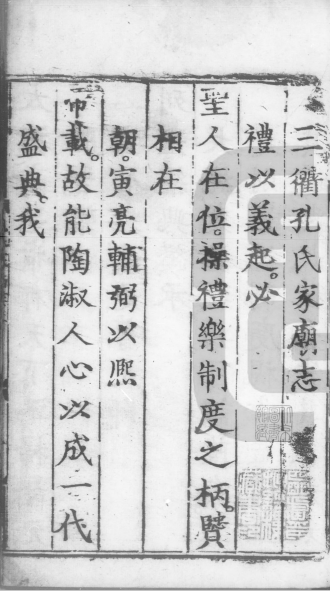 三衢孔氏家廟志
禮以義起。必
聖人在位。操禮樂制度之柄。賢
相在
朝。寅亮輔弼以熈
帝載。故能陶淑人心以成一代
盛典。我